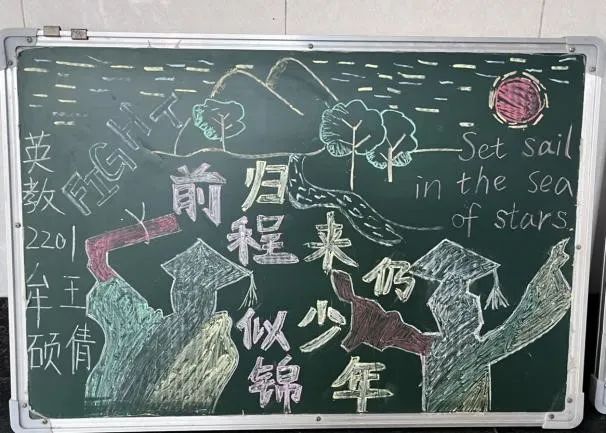 FIGHT
英教2201
牟硕
王倩
前程似锦
归来仍少年
Set sail
in the sea
of stars.